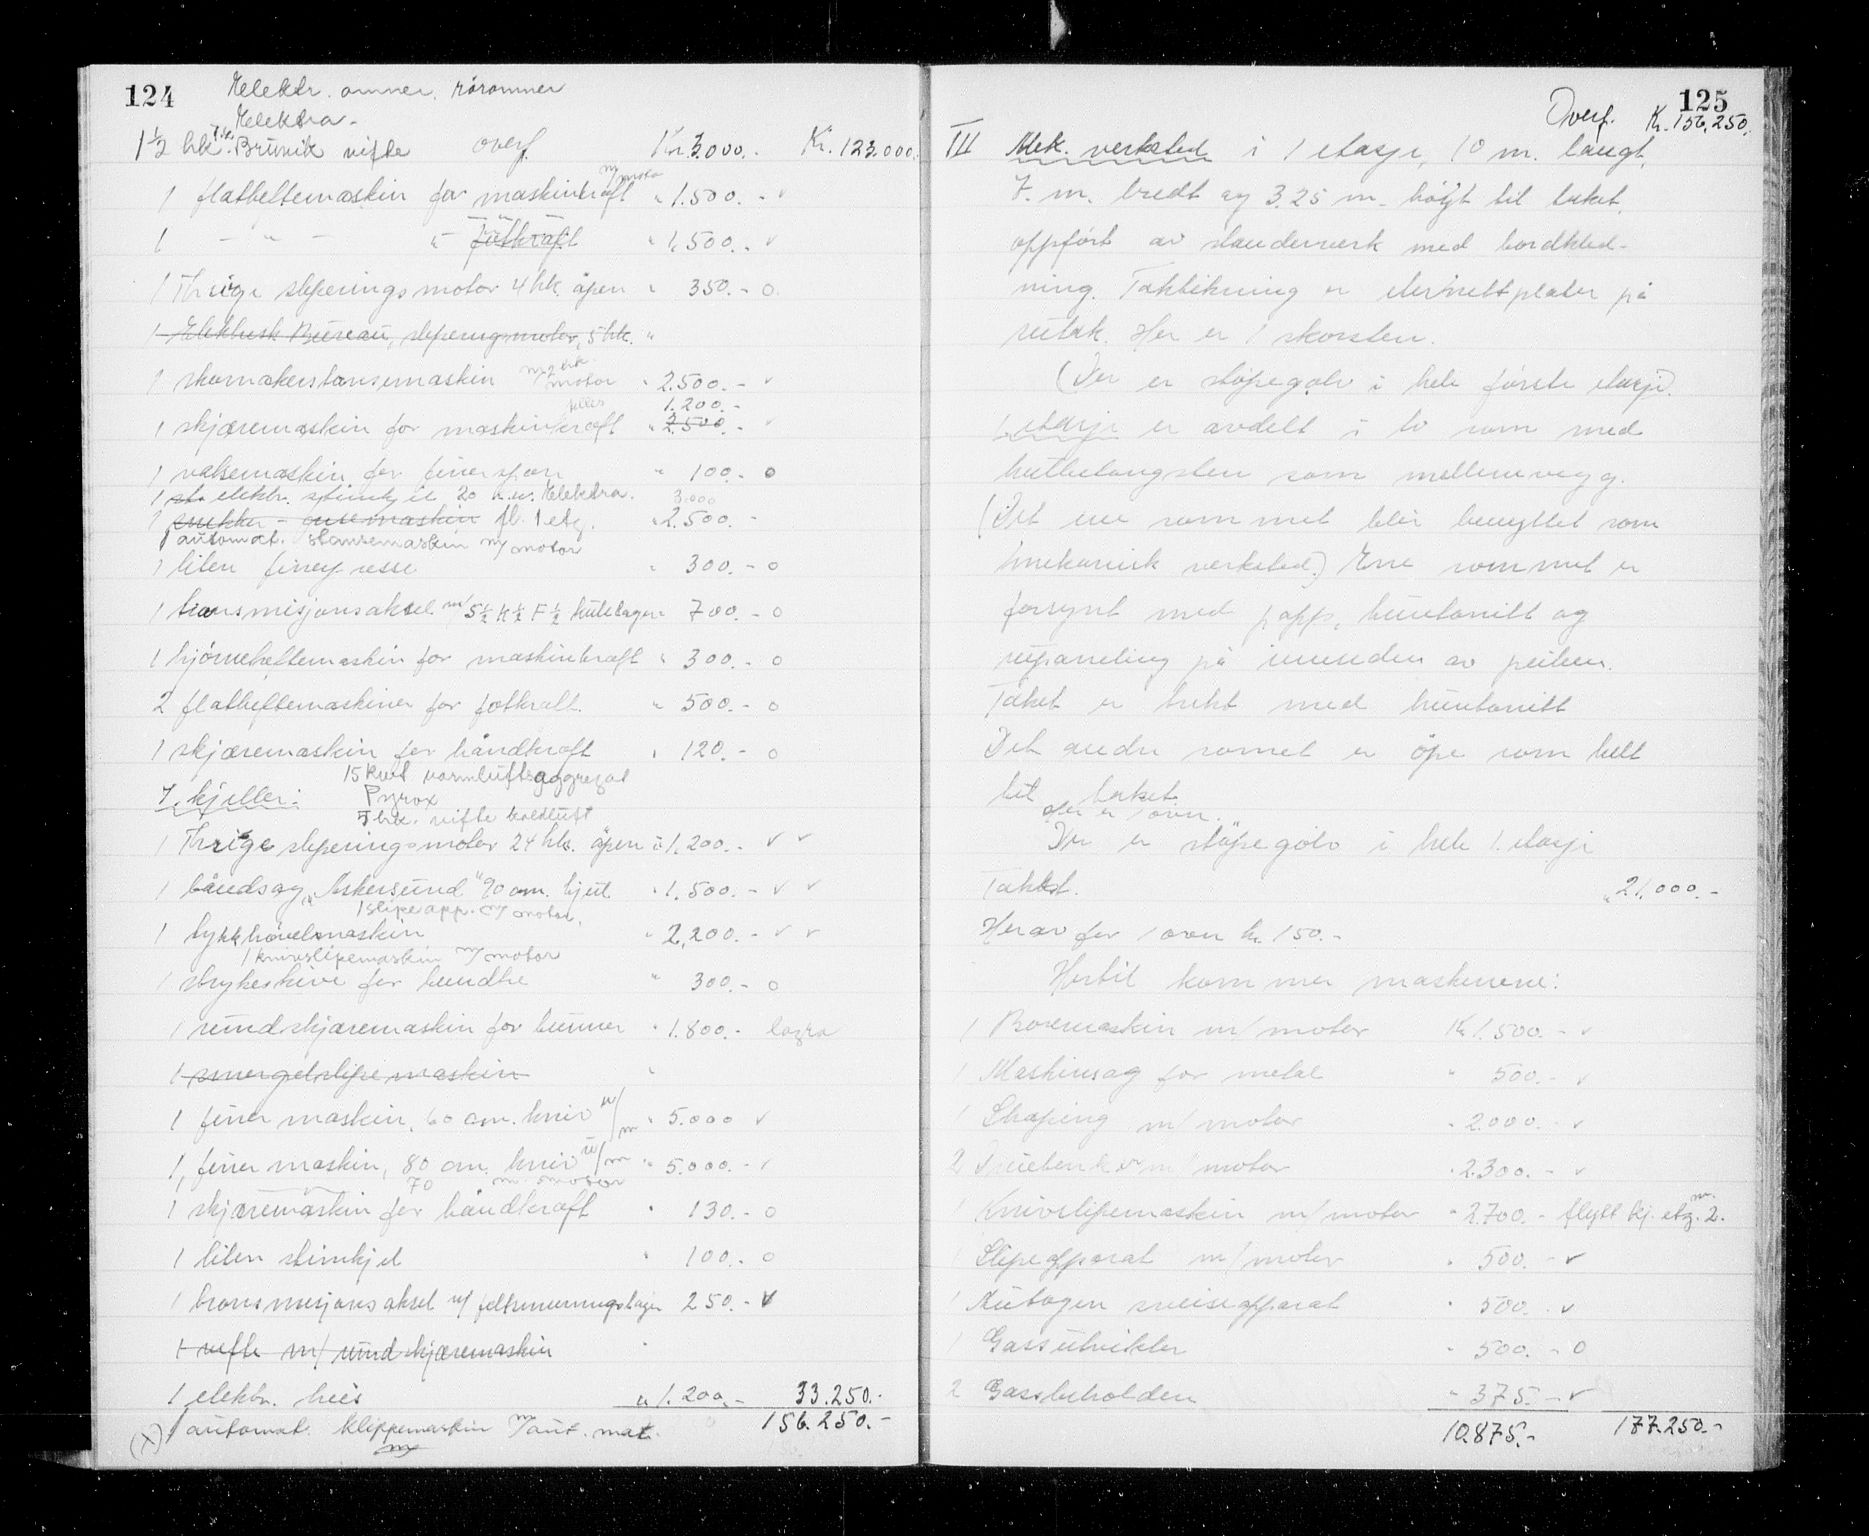 124
Elektr. omner. róromner
Elektra -
1 1/2 hk. Brunvik vifte overf. Kr. 3.000.- Kr. 123.000.
1 flatheftemaskin for maskinkraft m/motor " 1.500.- v
1 - " - " - fotkraft " 1.500.- v
1 Thrige sleperingsmotor 4 hk. åpen " 350.- o
1 Elektrisk Bureau, sleperingsmotor, 5 hk. "
1 skomakerstansemaskin m/2 hk. motor " 2.500.- v
1.200.-
1 skjæremaskin for maskinkraft " 2.500.- v
1 valsemaskin for finerspon " 100.- o
1 elektr. stimkjel 20 k.w. Elektra. 3.000
1 fl. 1 etg. " 2.500.-
1 automat. stansemaskin m/motor
1 liten finerpresse " 300.- o
1 transmisjonsaksel m/ 5 1/2 K 1/2 F 1/2 kulelager " 700.- o
1 hjørneheftemaskin for maskinkraft " 300.- o
2 flatheftemaskiner for fotkraft. " 500.- o
1 skjæremaskin for håndkraft " 120.- o
15 kwt varmluftsaggregat
I kjeller: Pyrox
7 hk. vifte kaldluft
1 Thrige sleperingsmotor 24 hk. åpen " 1.200.- v v
1 båndsag, "Askersund" 90 cm. hjul " 1.500.- v v
1 slipeapp. m/motor.
1 tykkhøvelmaskin " 2,200.- v v
1 knivslipemaskin m/motor
1 strykeskive for hendtre " 300.- o
1 rundskjæremaskin for bunner " 1.800.- lagra
1 smergelslipemaskin "
1 finermaskin, 60 cm. kniv m/m " 5.000 v
1, finermaskin, 80 cm. kniv m/m " 5.000.- v
70 m. motor
1 skjæremaskin for håndkraft " 130.- o
1 liten stimkjel " 100.- o
1 transmisjonsaksel m/ feltsmurningslager 250.- v
1 vifte m/ rundskjæremaskin "
1 elektr. heis " 1.200.- 33.250.-
(X) 1 automat. klippemaskin m/aut. mat. 156.250.-
125
Overf. Kr. 156,250.
III Mek. verksted i 1 etasje, 10 m. langt,
7. m. bredt og 3.25 m. høgt til taket,
oppført av stenderverk med bordkled-
ning. Taktekning er eternittplater på
rutak. Her er 1 skorsten.
(Der er støpegolv i hele første etasje.
1 etasje er avdelt i to rom med
huntonittvegg som mellemvegg.
(Det ene rommet blir benyttet som
mekanisk verksted.) Ene rommet er
forsynt med papp, huntonitt og
rupaneling på innsiden av
Taket er trekt med huntonitt
Det andre romet er åpe rom helt
til taket.
Her er 1 ovn.
Der er støpegolv i hele 1. etasje
Takst. " 21,000.-
Herav for 1 ovn kr. 150.-
Hertil kommer maskinene:
1 Boremaskin m/motor Kr. 1.500.- v
1 Maskinsag for metal " 500.- v
1 Shaping m/motor " 2.000.- v
2 Dreiebenker m/motor " 2.300.- v
1 Knivslipemaskin m/motor " 2.700.- flytt kj. etg. 2.
1 Slipeapparat m/motor " 500.- v
1 Autogen sveiseapparat " 500.- v
1 Gassutvikler " 500.- o
2 Gassbeholdere " 375.- v
10.875.- 177.250.-